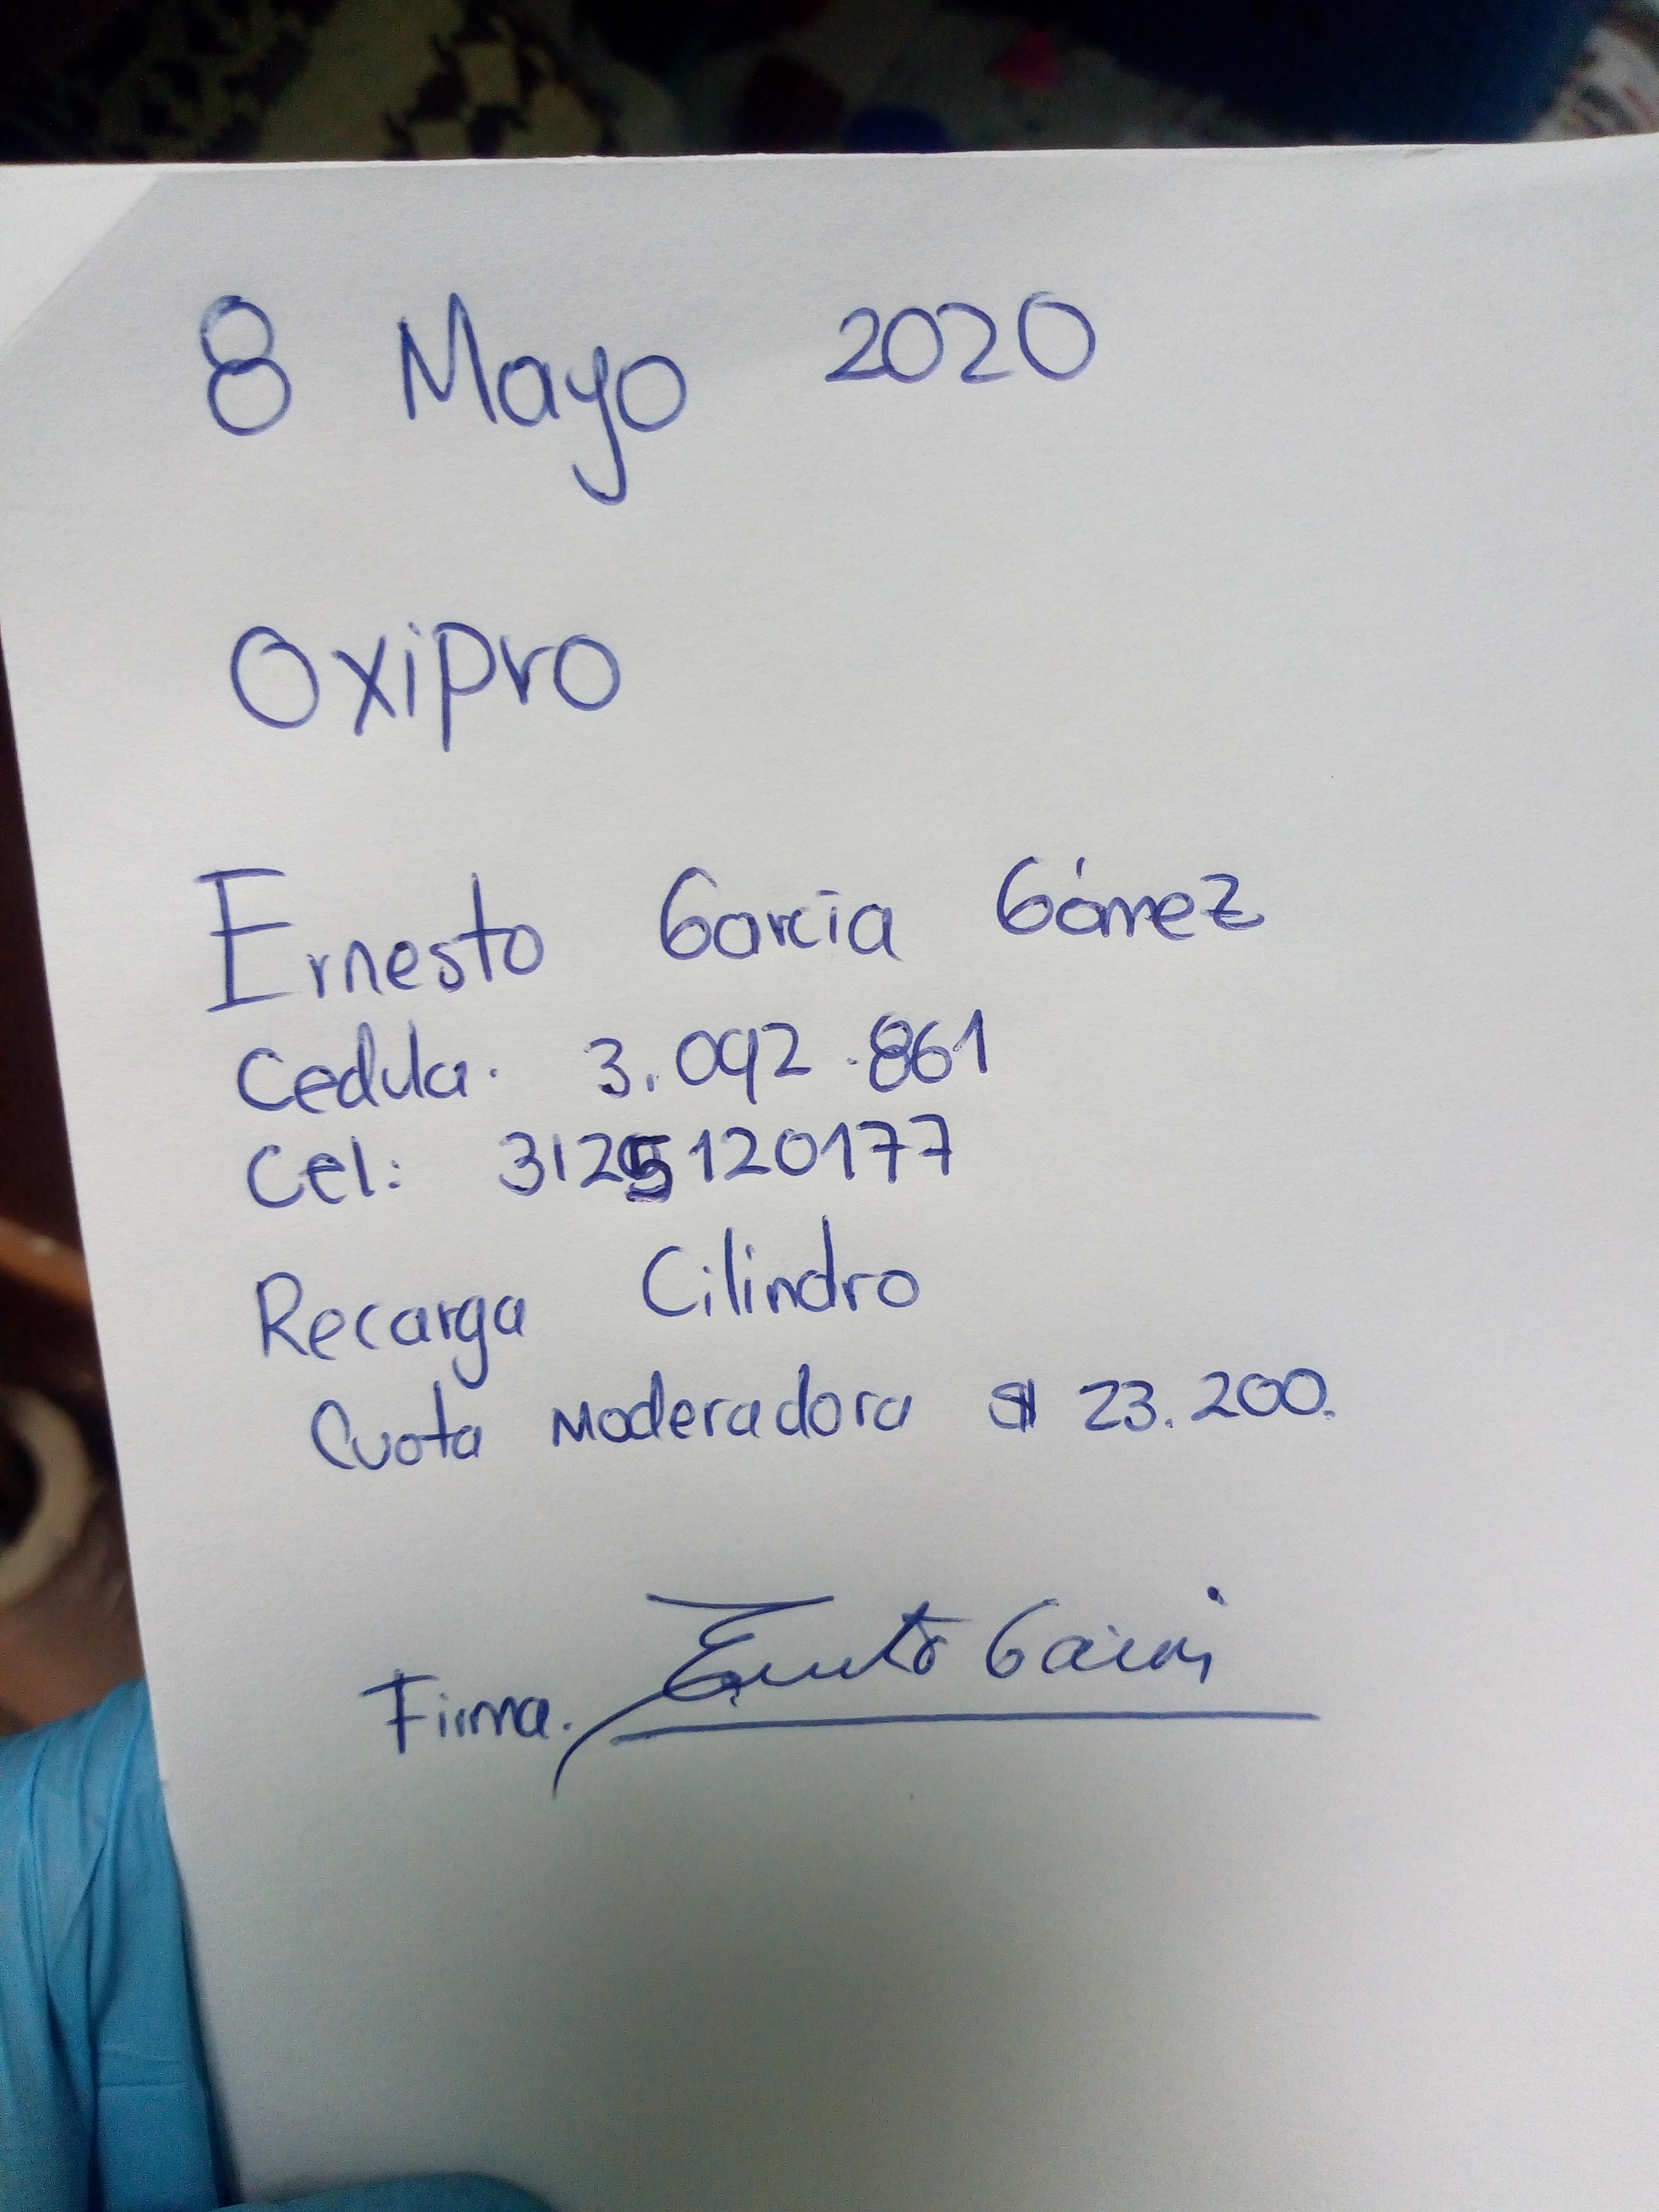 8 Mayo 2020
Oxipro
Ernesto Garcia Gómez
Cedula. 3.092.861
Cel: 3125120177
Recarga Cilindro
Cuota Moderadora $ 23.200.
Firma. Ernesto Garcia